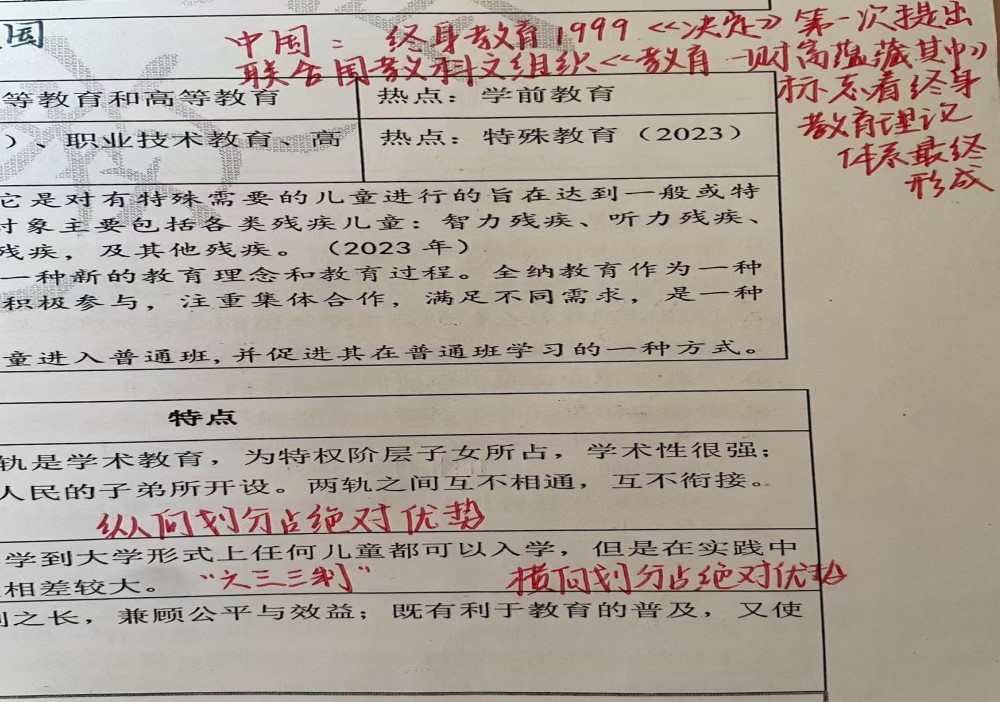 国
中国： 终身教育1999《决定》第一次提出
联合国教科文组织《教育—财富蕴藏其中》
标志着终身
教育理论
体系最终
形成
等教育和高等教育 热点：学前教育
）、职业技术教育、高 热点：特殊教育（2023）
它是对有特殊需要的儿童进行的旨在达到一般或特
对象主要包括各类残疾儿童：智力残疾、听力残疾、
残疾，及其他残疾。（2023 年）
一种新的教育理念和教育过程。全纳教育作为一种
积极参与，注重集体合作，满足不同需求，是一种
童进入普通班，并促进其在普通班学习的一种方式。
特点
轨是学术教育，为特权阶层子女所占，学术性很强；
人民的子弟所开设。两轨之间互不相通，互不衔接。
纵向划分占绝对优势
学到大学形式上任何儿童都可以入学，但是在实践中
相差较大。 “六三三制” 横向划分占绝对优势
之长，兼顾公平与效益；既有利于教育的普及，又使